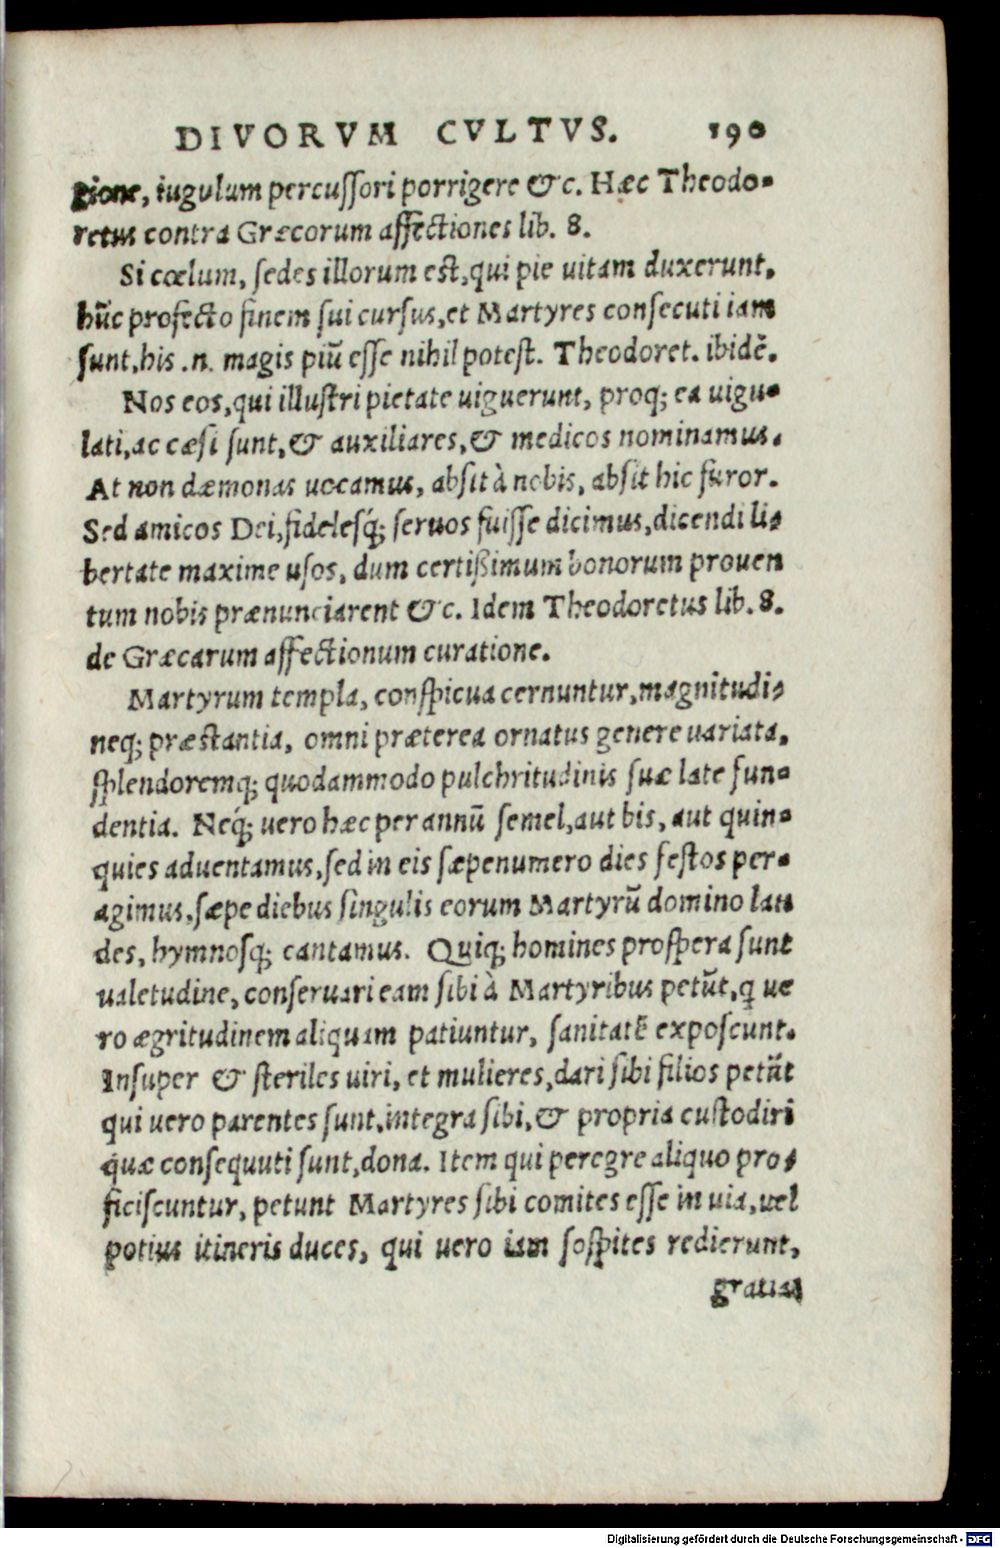 DIVORVM CVLTVS. 190
gione, iugulum percussori porrigere &c. Hæc Theodo-
retus contra Græcorum affectiones lib. 8.
Si cœlum, sedes illorum est, qui pie uitam duxerunt,
hũc profecto finem sui cursus, et Martyres consecuti iam
sunt, his .n. magis piũ esse nihil potest. Theodoret. ibidẽ.
Nos eos, qui illustri pietate uiguerunt, proq; ea uigu-
lati, ac cæsi sunt, & auxiliares, & medicos nominamus.
At non dæmonas uocamus, absit à nobis, absit hic furor.
Sed amicos Dei, fidelesq́; seruos fuisse dicimus, dicendi li-
bertate maxime usos, dum certißimum bonorum prouen
tum nobis prænunciarent &c. Idem Theodoretus lib. 8.
de Græcarum affectionum curatione.
Martyrum templa, conspicua cernuntur, magnitudi-
neq; præstantia, omni præterea ornatus genere uariata,
splendoremq; quodammodo pulchritudinis suæ late fun-
dentia. Neq́; uero hæc per annũ semel, aut bis, aut quin-
quies aduentamus, sed in eis sæpenumero dies festos per-
agimus, sæpe diebus singulis eorum Martyrũ domino lau
des, hymnosq; cantamus. Quiq; homines prospera sunt
ualetudine, conseruari eam sibi à Martyribus petũt, q̃ ue
ro ægritudinem aliquam patiuntur, sanitatẽ exposcunt.
Insuper & steriles uiri, et mulieres, dari sibi filios petũt
qui uero parentes sunt, integra sibi, & propria custodiri
quæ consequuti sunt, dona. Item qui peregre aliquo pro-
ficiscuntur, petunt Martyres sibi comites esse in uia, uel
potius itineris duces, qui uero iam sospites redierunt,
gratias
Digitalisierung gefördert durch die Deutsche Forschungsgemeinschaft - DFG